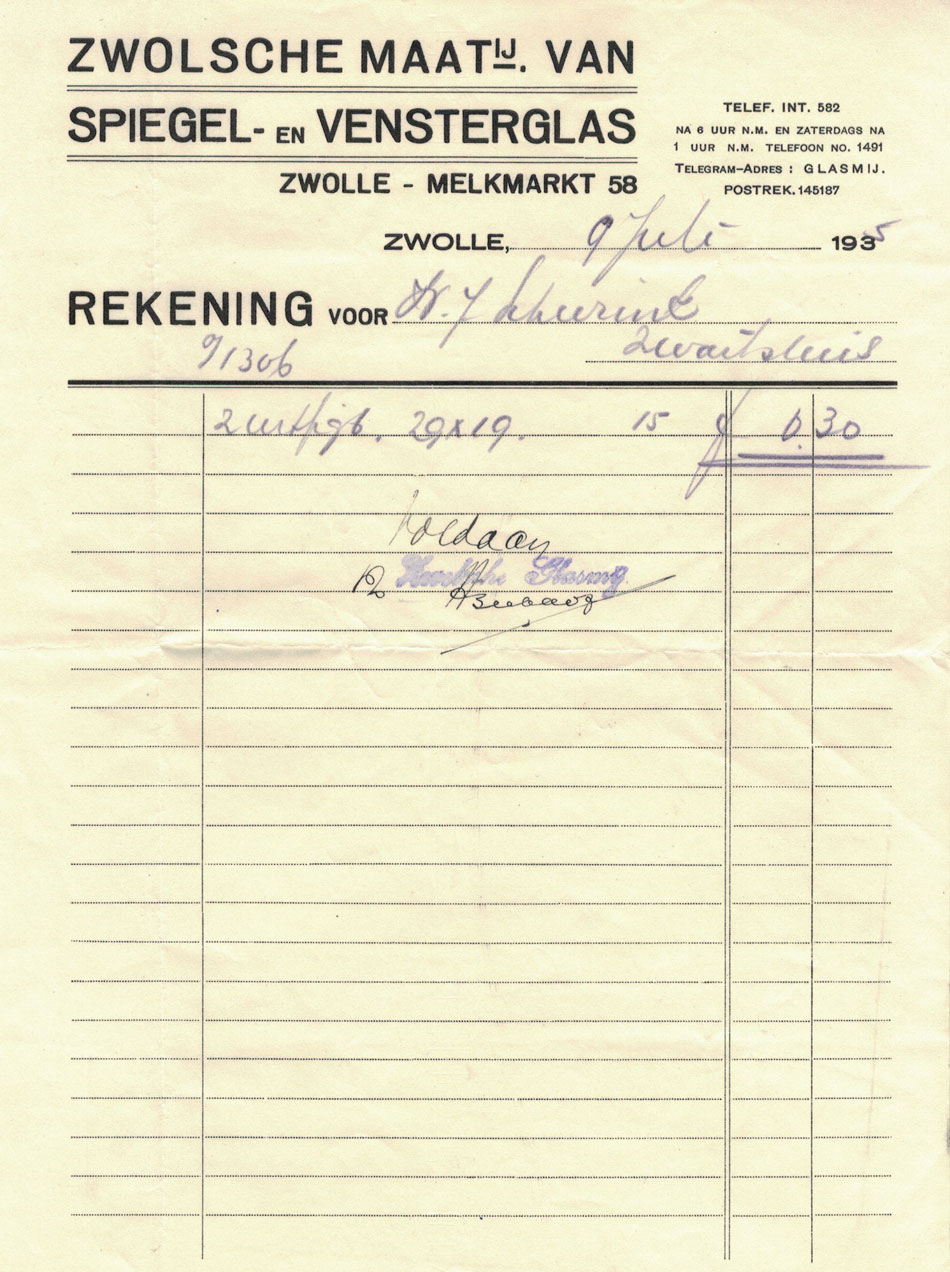 ZWOLSCHE MAATIJ. VAN
SPIEGEL- EN VENSTERGLAS
ZWOLLE - MELKMARKT 58
TELEF. INT. 582
NA 6 UUR N.M. EN ZATERDAGS NA
1 UUR N.M. TELEFOON NO. 1491
TELEGRAM-ADRES: GLASMIJ.
POSTREK. 145187
ZWOLLE, 9 Juli 1935
REKENING VOOR W. J. Scheurink
Zwartsluis
9/1306
2 29 x 19. 15 f 0.30
Voldaan
Zwolsche Glasmij.